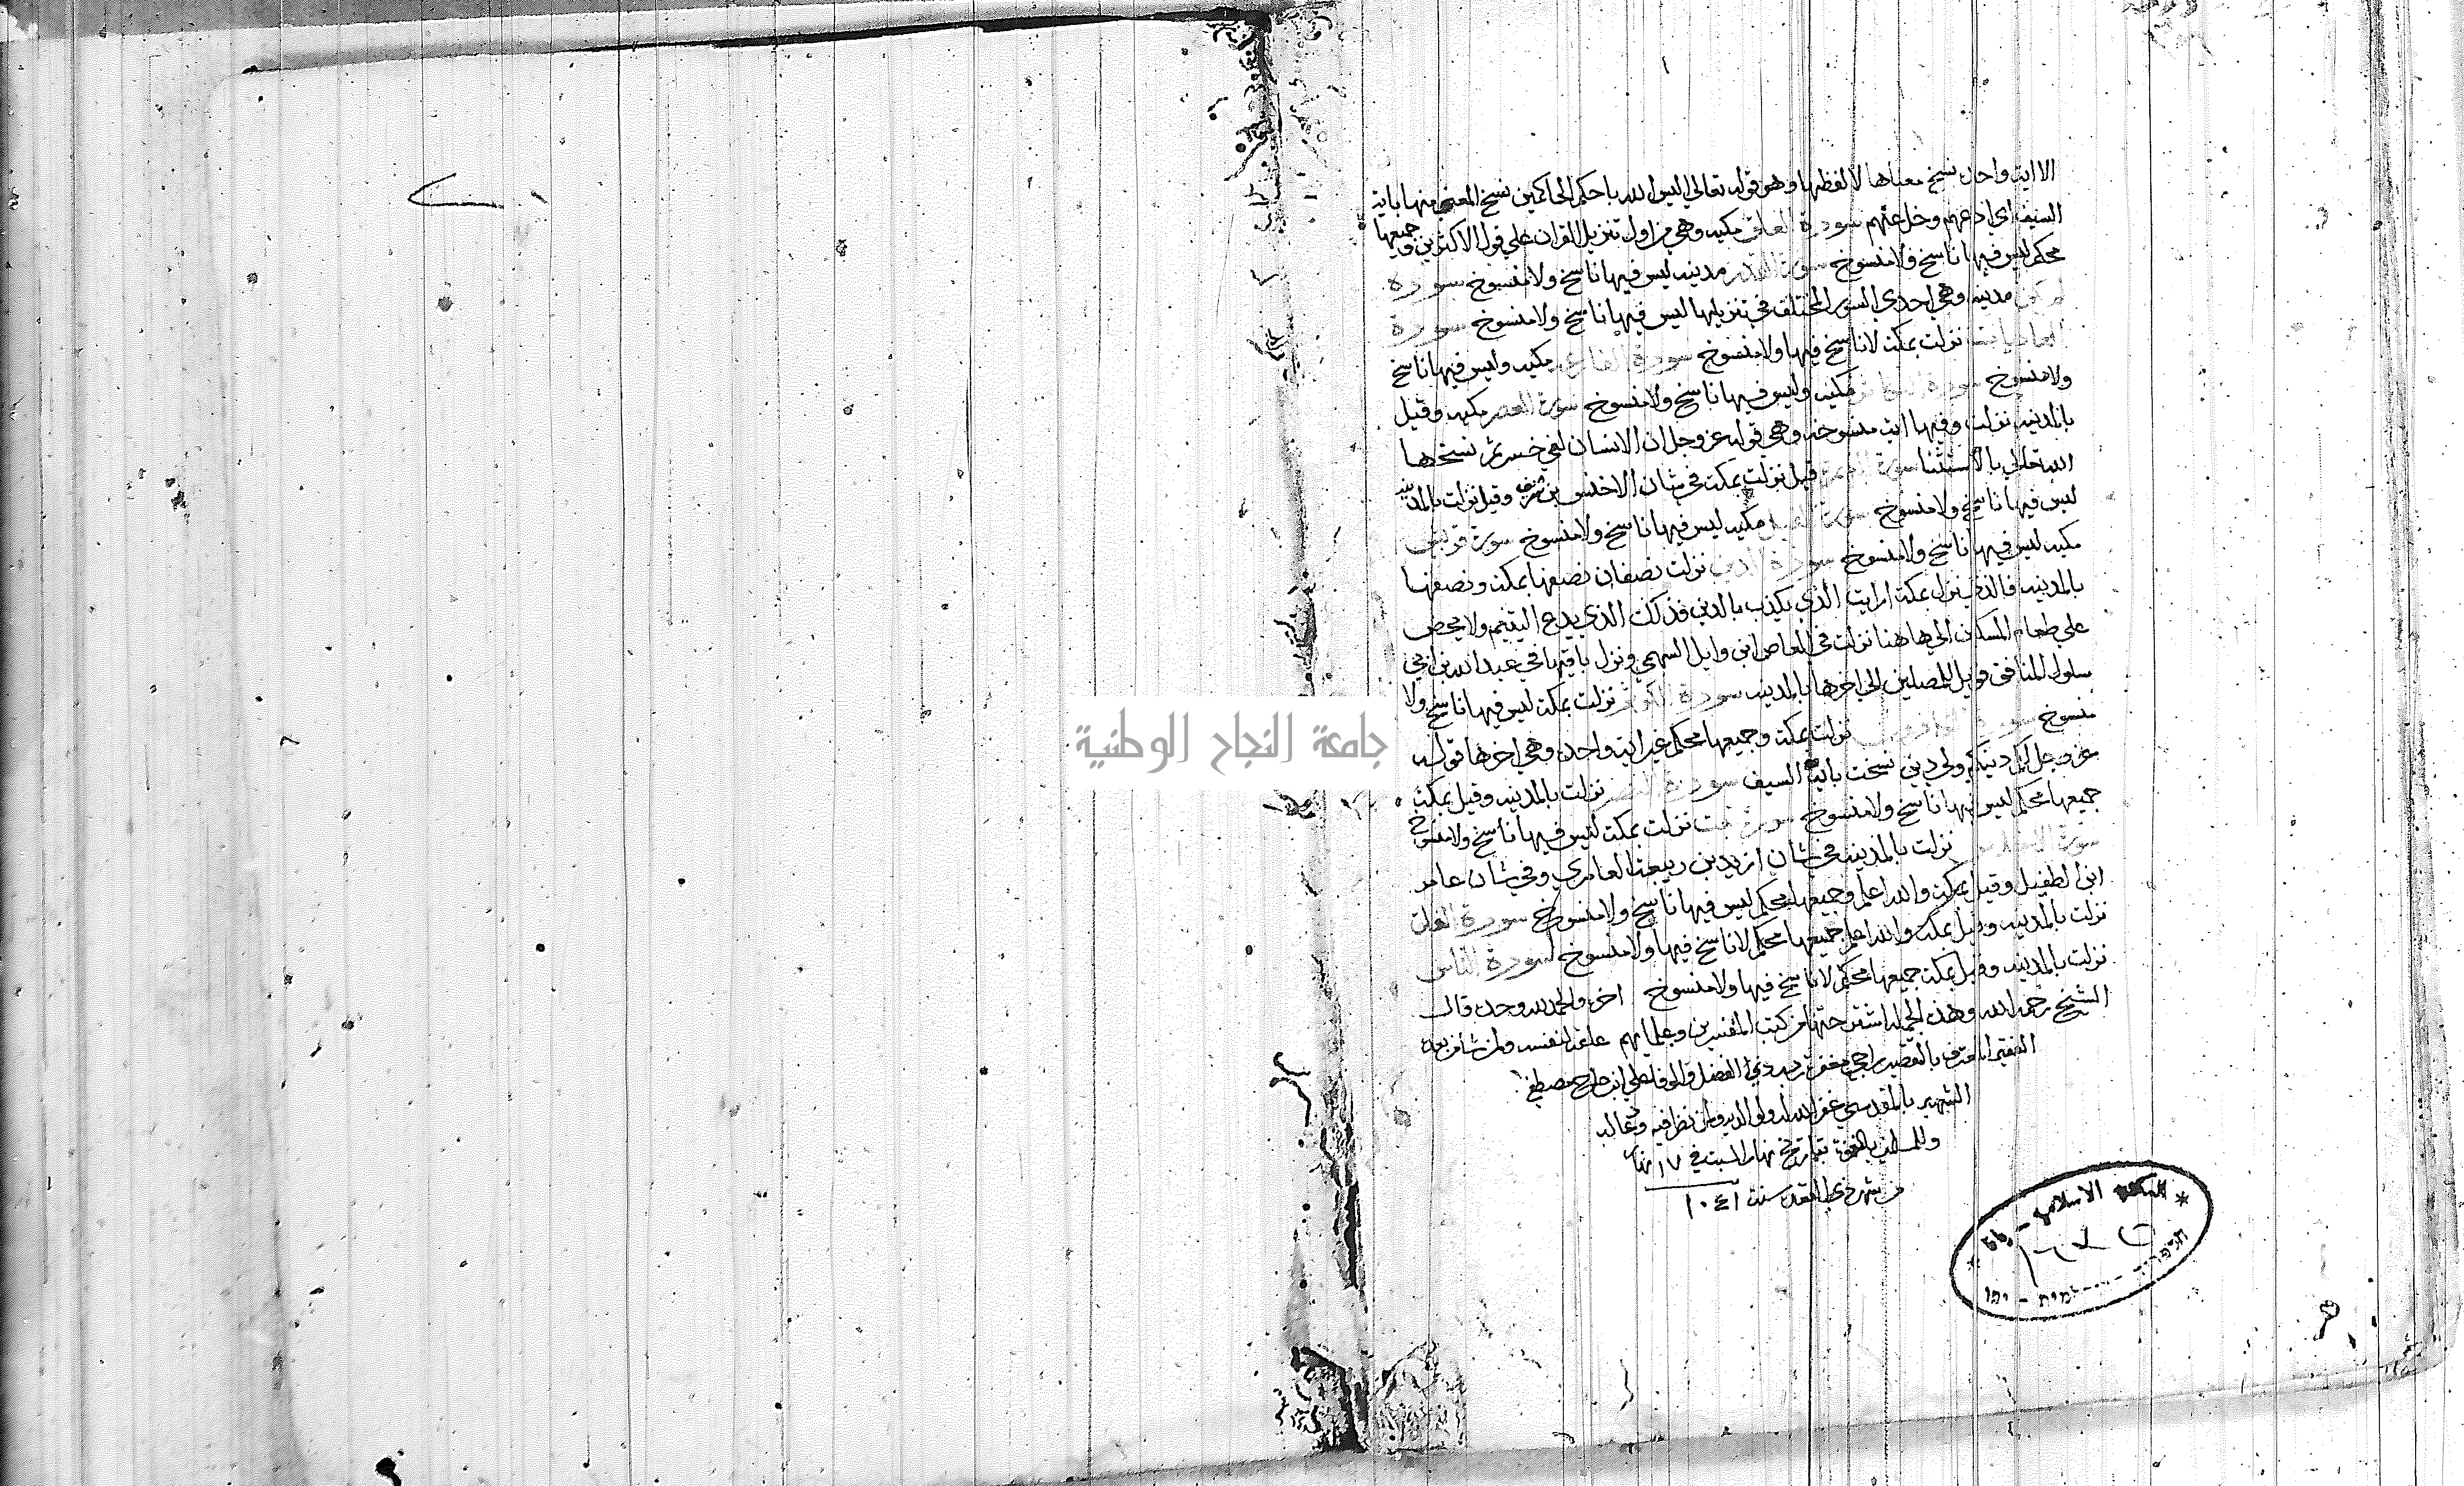 الا اية واحدة نسخ معناها لا لفظها وهو قوله تعالي اليس الله باحكم الحاكمين نسخ المعنى منها باية
السيف اي دعهم وخل عنهم سورة العلق مكيه وهي من اول تنزيل القران علي قول الاكثرين وجميعها
محكم ليس فيها ناسخ ولا منسوخ سورة القدر مدنيه ليس فيها ناسخ ولا منسوخ سورة
مدنيه وهي احدي السور المختلف في تنزيلها ليس فيها ناسخ ولا منسوخ سورة
العاديات نزلت بمكة لا ناسخ فيها ولا منسوخ سورة القارعه مكيه وليس فيها ناسخ
ولا منسوخ سورة التكاثر مكيه وليس فيها ناسخ ولا منسوخ سورة العصر مكيه وقيل
بالمدنيه نزلت وفيها اية منسوخه وهي قوله عز وجل ان الانسان لفي خسر ثم نسخها
الله تعالي بالاستثنا سورة الهمزة قيل نزلت بمكة في شان الاخنس بن شريق وقيل نزلت بالمدينه
ليس فيها ناسخ ولا منسوخ سورة الفيل مكيه ليس فيها ناسخ ولا منسوخ سورة قريش
مكيه ليس فيها ناسخ ولا منسوخ سورة الدين نزلت نصفان نصفها بمكة ونصفها
بالمدينه فالذي نزل بمكة ارايت الذي يكذب بالدين فذلك الذي يدع اليتيم ولا يحض
علي طعام المسكين الي هاهنا نزلت في العاص ابن وايل السهمي ونزل باقيها في عبد الله بن ابي
سلول المنافق فويل للمصلين الي اخرها بالمدينه سورة الكوثر نزلت بمكة ليس فيها ناسخ ولا
منسوخ سورة الكافرون نزلت بمكة وجميعها محكم غير اية واحدة وهي اخرها قوله
عز وجل لكم دينكم ولي دين نسخت باية السيف سورة النصر نزلت بالمدينه وقيل بمكة
جميعها محكم ليس فيها ناسخ ولا منسوخ سورة تبت نزلت بمكة ليس فيها ناسخ ولا منسوخ
سورة الاخلاص نزلت بالمدينه في شان اربد بن ربيعة العامري وفي شان عامر
ابن الطفيل وقيل بمكة والله اعلم وجميعها محكم ليس فيها ناسخ ولا منسوخ سورة الفلق
نزلت بالمدينه وقيل بمكة والله اعلم جميعها محكم لا ناسخ فيها ولا منسوخ سورة الناس
نزلت بالمدينه وقيل بمكة جميعها محكم لا ناسخ فيها ولا منسوخ اخره والحمد لله وحده قال
الشيخ رحمه الله وهذه الجمله استخرجتها من كتب المفسرين وعلمايهم علقه لنفسه ولمن شا من بعده
الفقير المعترف بالتقصير راجي مغفرة ربه ذي الفضل والوفا علي ابن حاج مصطفي
الشهير بالمقدسي غفر الله له ولوالديه ولمن نظر فيه ودعا له
وللمسلمين بالمغفرة بتاريخ نهار السبت في ١٧
من شهر ذي القعدة سنة ١٠٤١
المكتبة الاسلامية - يافا
جامعة النجاح الوطنية